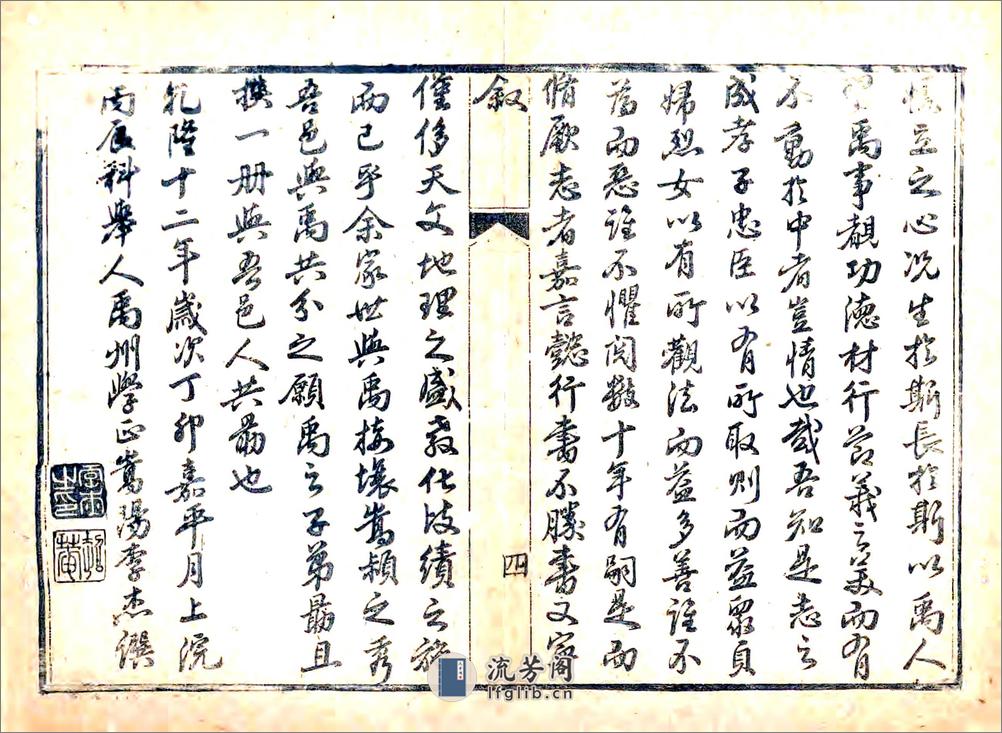 懦立之心況生於斯長於斯以禹人
禹事覩功德材行節義之美而有
不動於中者豈情也哉吾知是志之
成孝子忠臣以有所取則而益眾貞
婦烈女以有所觀法而益多善誰不
為而惡誰不懼閱數十年有嗣是而
脩厥志者嘉言懿行書不勝書又寧
敘
四
僅侈天文地理之盛教化政績之施
而已乎余家世與禹接壤嵩潁之秀
吾邑與禹共分之願禹之子弟勗且
撰一册與吾邑人共勗也
乾隆十二年歲次丁卯嘉平月上浣
丙辰科舉人禹州學正嵩陽李杰撰
流芳閣
lfglib.cn